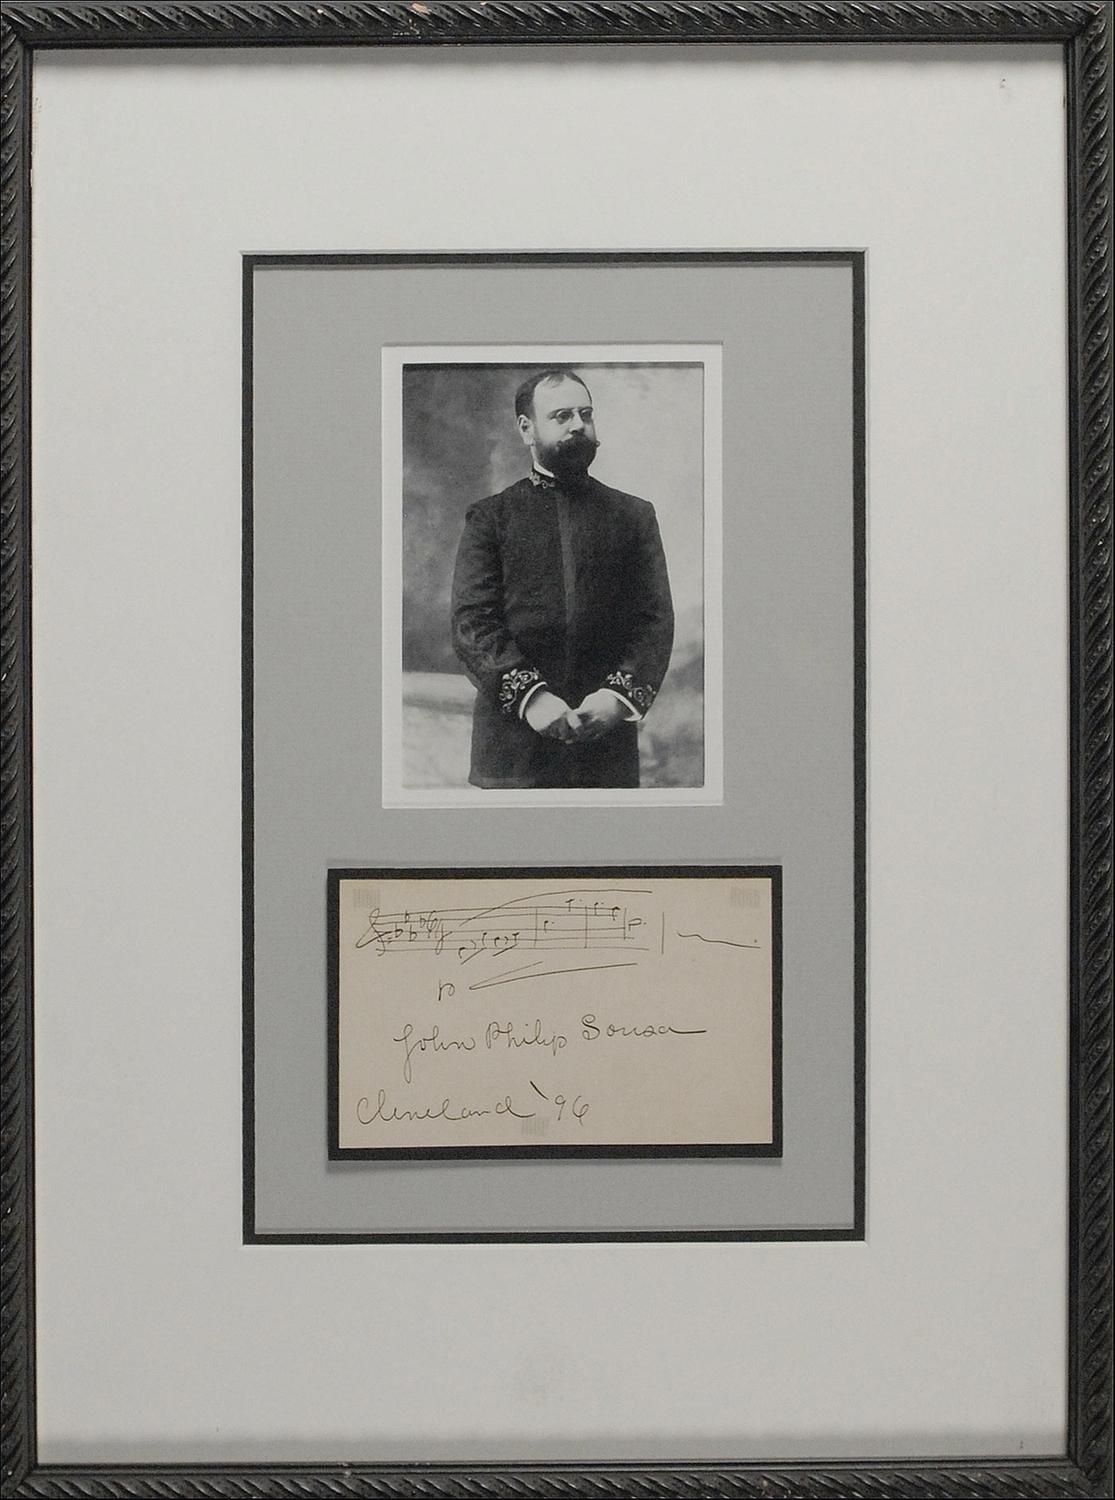 John Philip Sousa
Cleveland '96